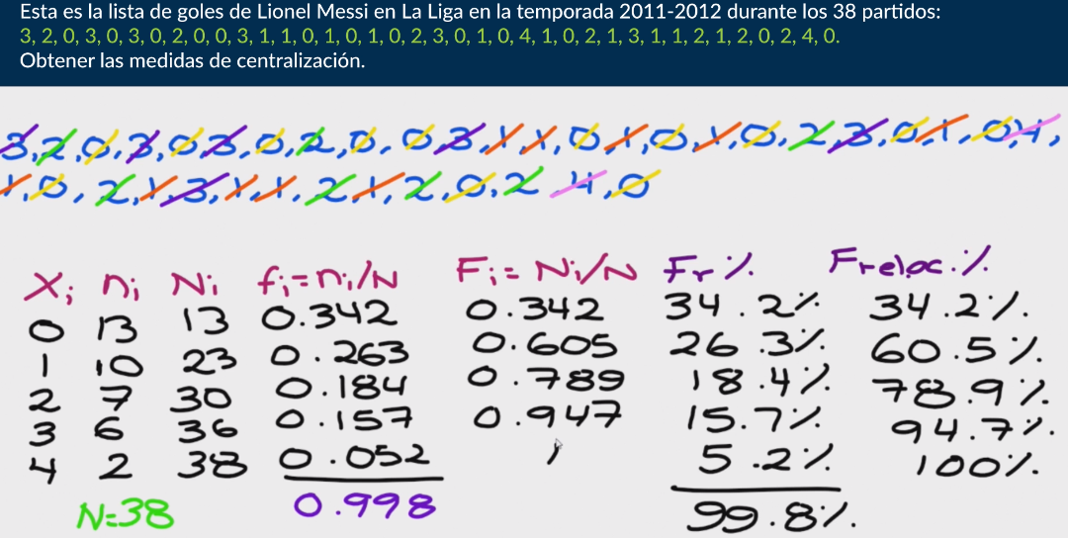 Esta es la lista de goles de Lionel Messi en La Liga en la temporada 2011-2012 durante los 38 partidos:
3, 2, 0, 3, 0, 3, 0, 2, 0, 0, 3, 1, 1, 0, 1, 0, 1, 0, 2, 3, 0, 1, 0, 4, 1, 0, 2, 1, 3, 1, 1, 2, 1, 2, 0, 2, 4, 0.
Obtener las medidas de centralización.
3,2,0,3,0,3,0,2,0,0,3,1,1,0,1,0,1,0,2,3,0,1,0,4,
1,0,2,1,3,1,1,2,1,2,0,2,4,0
Xi ni Ni fi=ni/N Fi=Ni/N Fr% Freloc.%
0 13 13 0.342 0.342 34.2% 34.2%
1 10 23 0.263 0.605 26.3% 60.5%
2 7 30 0.184 0.789 18.4% 78.9%
3 6 36 0.157 0.947 15.7% 94.7%
4 2 38 0.052 1 5.2% 100%
N=38 0.998 99.8%